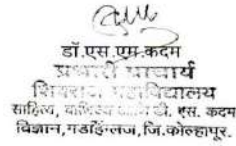 डॉ.एस.एम.कदम
प्रभारी प्राचार्य
शिवराज महाविद्यालय
साहित्य, वाणिज्य आणि डी. एस. कदम
विज्ञान,गडहिंग्लज,जि.कोल्हापूर.